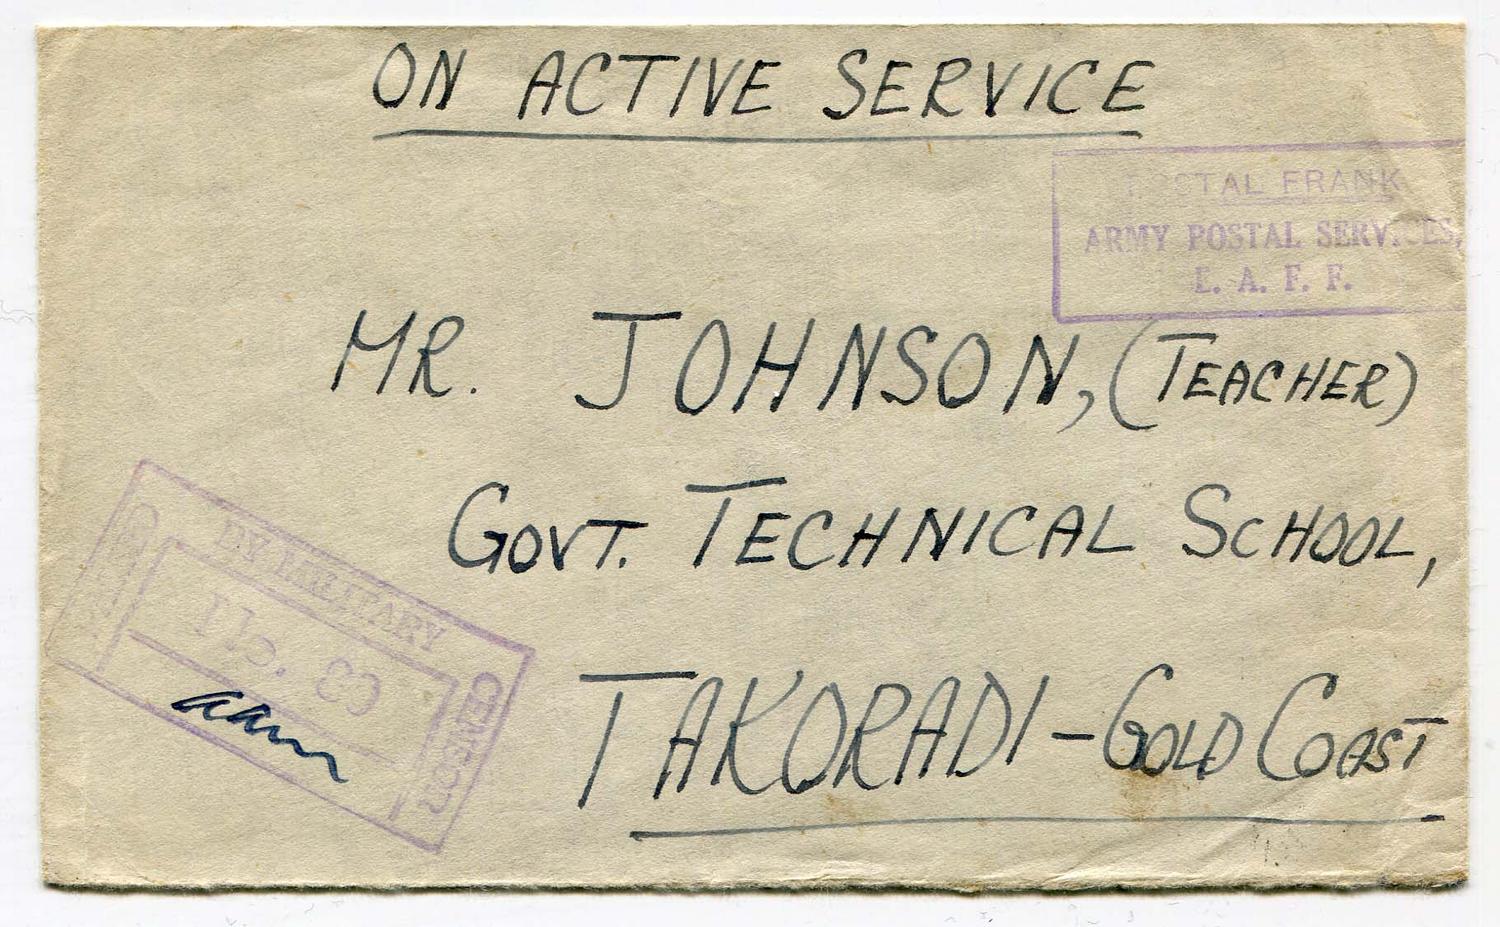 ON ACTIVE SERVICE
POSTAL FRANK
ARMY POSTAL SERVICES,
L. A. F. F.
MR. JOHNSON, (TEACHER)
GOVT. TECHNICAL SCHOOL,
TAKORADI - GOLD COAST
BY MILITARY
CENSOR